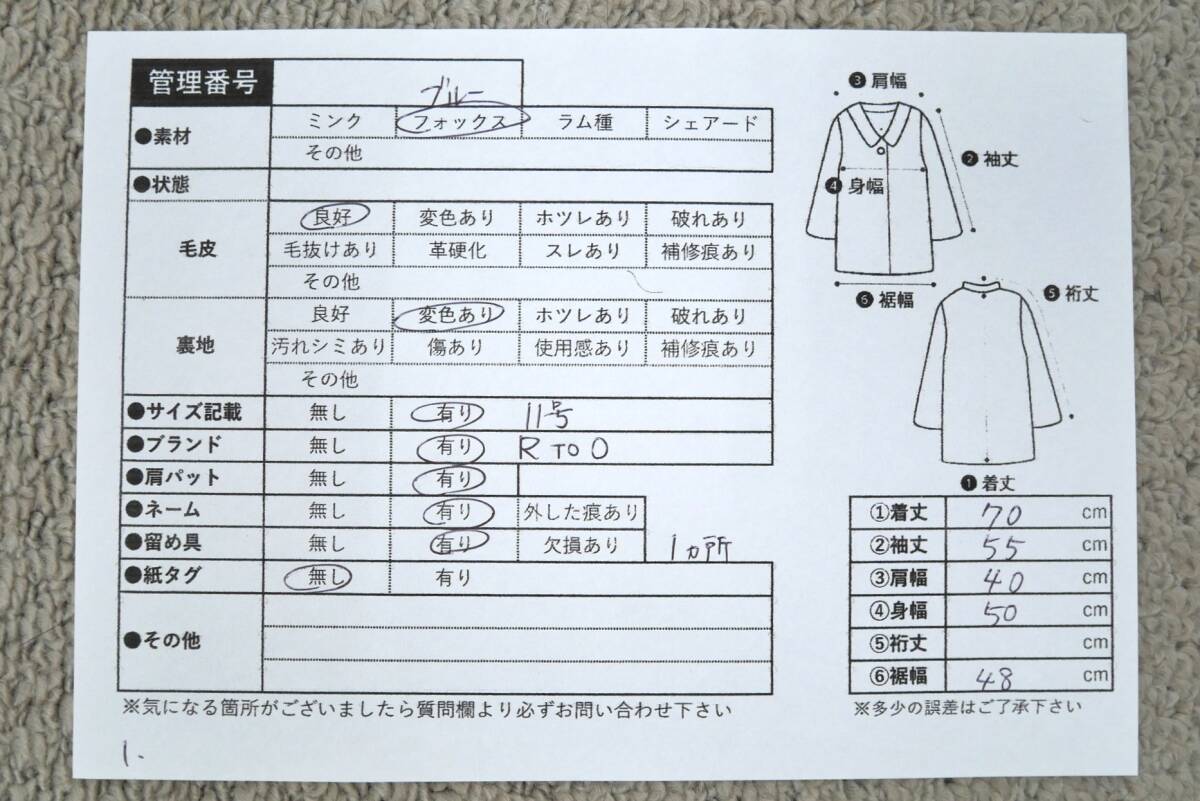 管理番号
ブルー
●素材 ミンク フォックス ラム種 シェアード
その他
●状態
毛皮 良好 変色あり ホツレあり 破れあり
毛抜けあり 革硬化 スレあり 補修痕あり
その他
裏地 良好 変色あり ホツレあり 破れあり
汚れシミあり 傷あり 使用感あり 補修痕あり
その他
●サイズ記載 無し 有り 11号
●ブランド 無し 有り R TO O
●肩パット 無し 有り
●ネーム 無し 有り 外した痕あり
●留め具 無し 有り 欠損あり 1ヵ所
●紙タグ 無し 有り
●その他
※気になる箇所がございましたら質問欄より必ずお問い合わせ下さい
1.
❸ 肩幅
❷ 袖丈
❹ 身幅
❻ 裾幅
❺ 裄丈
❶ 着丈
①着丈 70 cm
②袖丈 55 cm
③肩幅 40 cm
④身幅 50 cm
⑤裄丈 cm
⑥裾幅 48 cm
※多少の誤差はご了承下さい